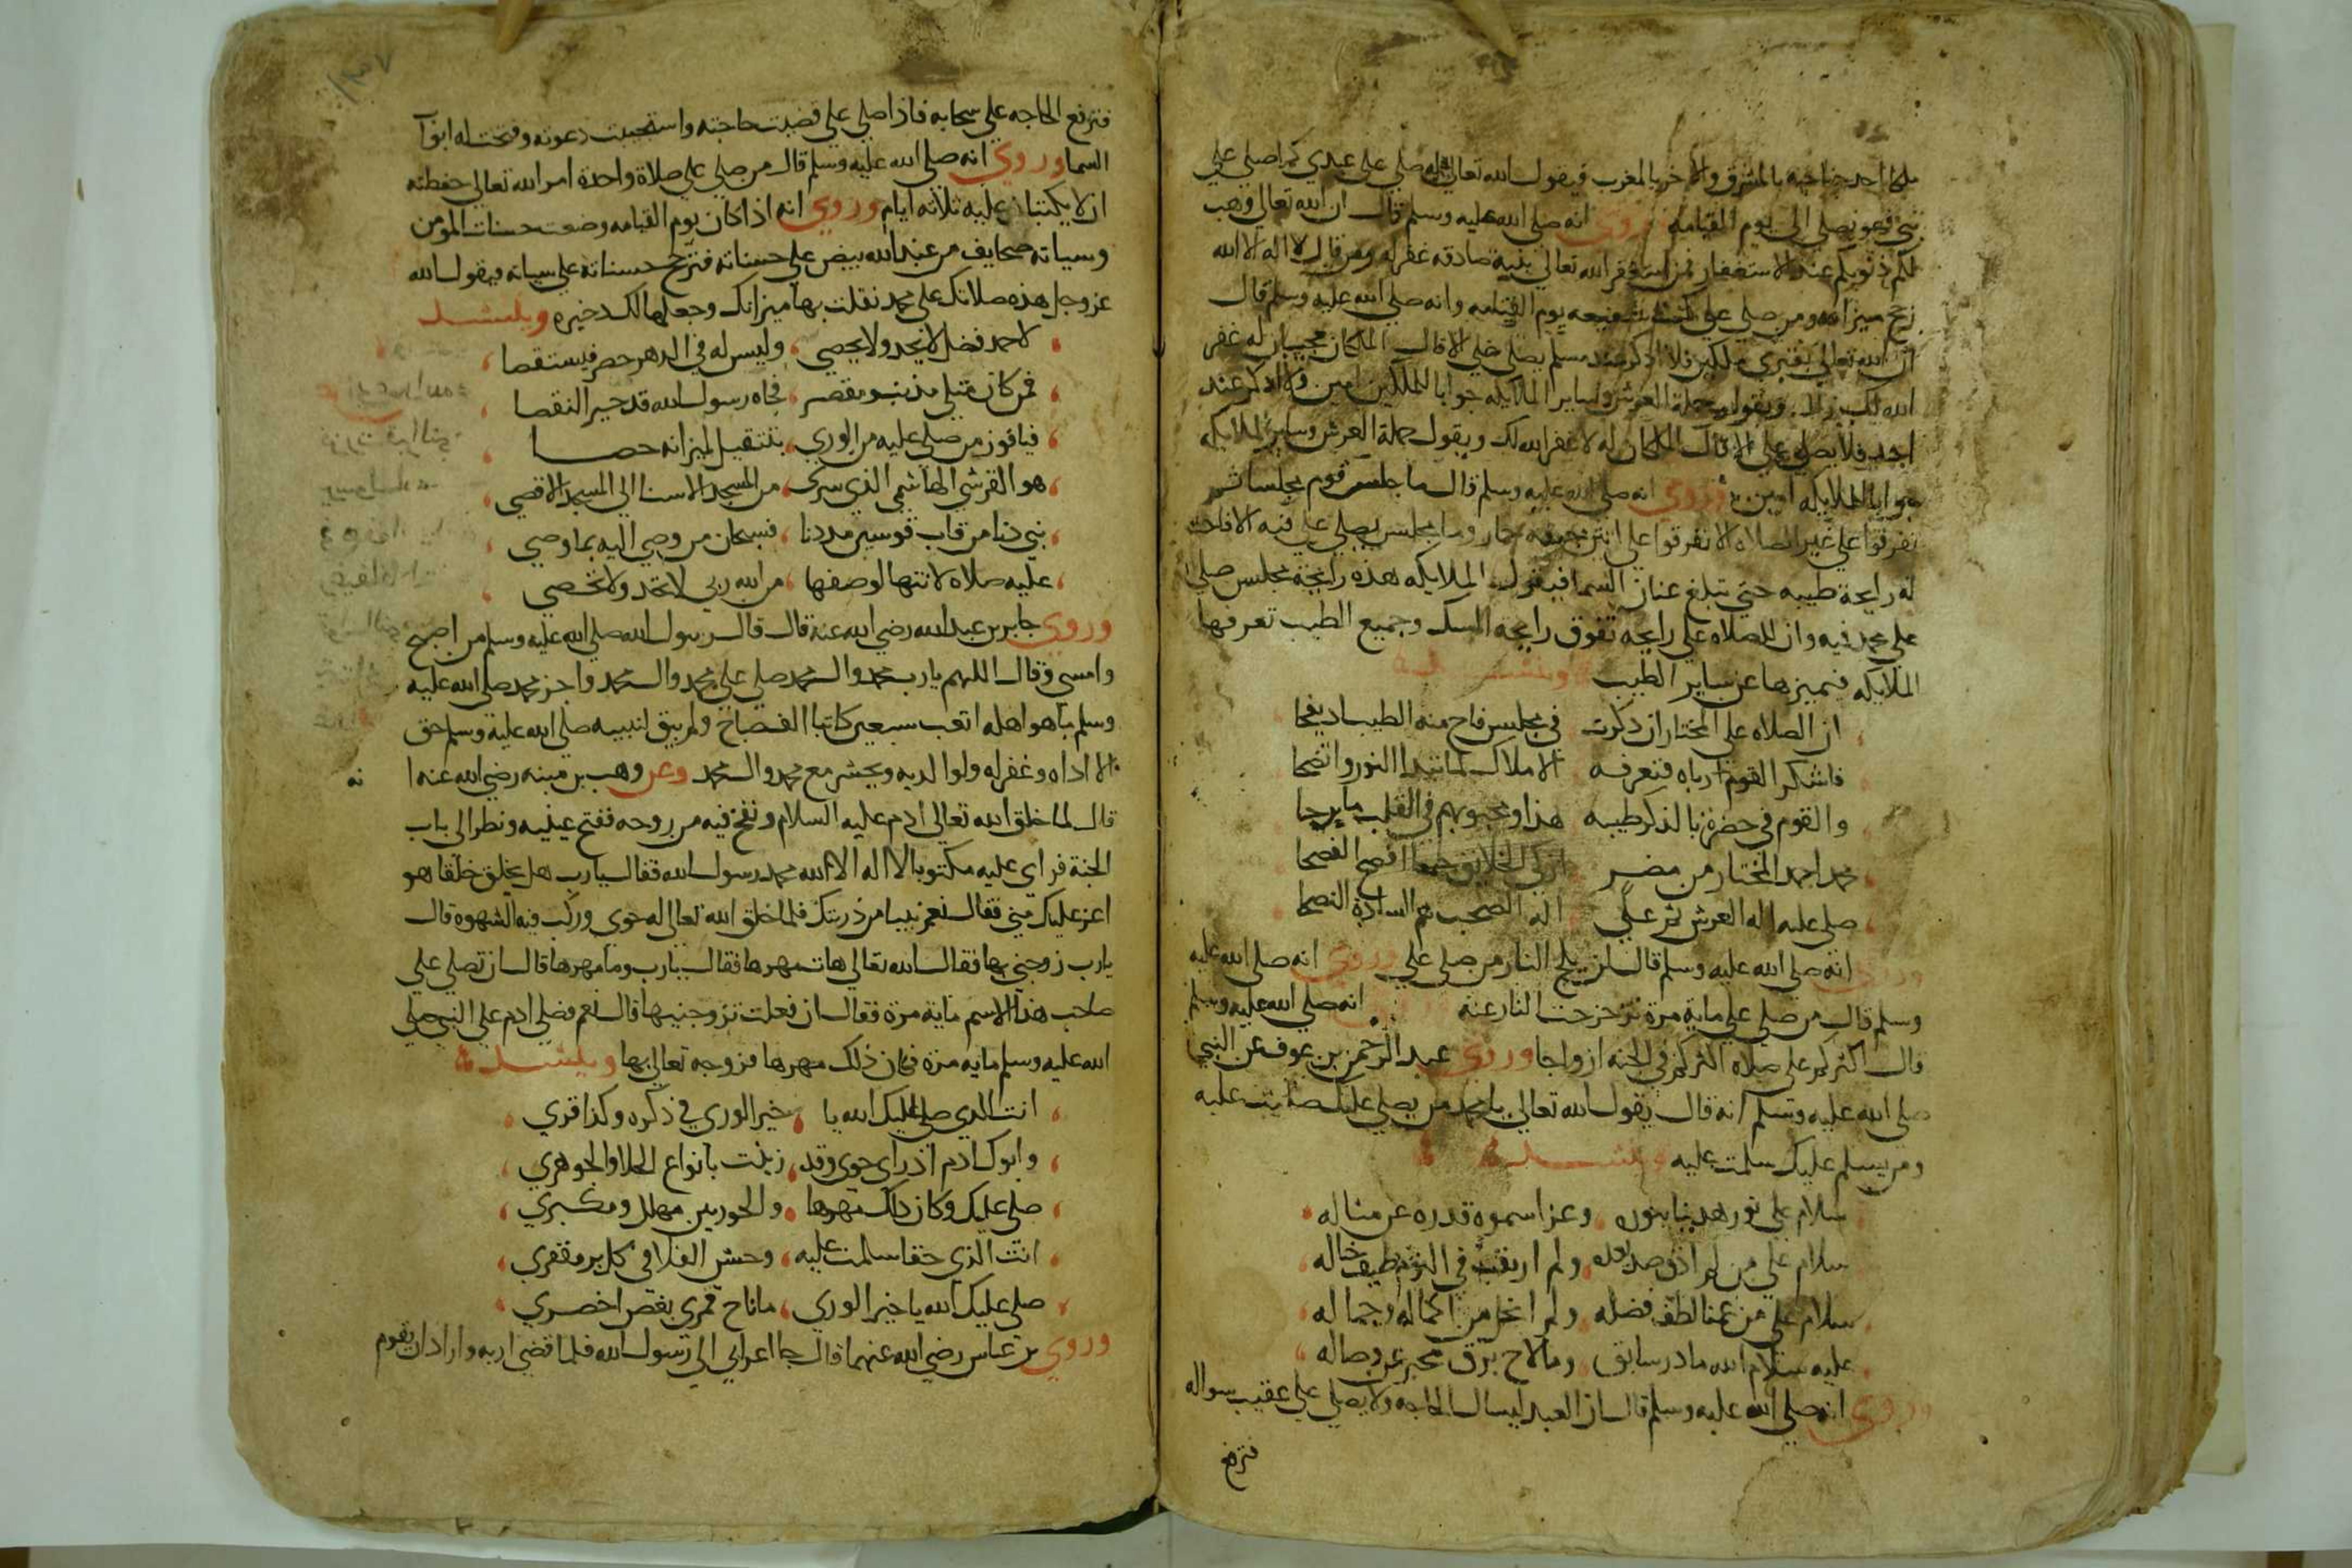 ملكا احد جناحيه بالمشرق والاخر بالمغرب فيقول الله تعالى له صلي على عبدي كما صلي على
نبي فهو يصلي الى يوم القيامه وروي انه صلى الله عليه وسلم قال ان الله تعالى وهب
لكم ذنوبكم عند الاستغفار فمن استغفر الله تعالى بنية صادقه غفر له ومن قال لا اله الا الله
رجح ميزانه ومن صلي علي كنت شفيعه يوم القيامه وانه صلى الله عليه وسلم قال
ان الله تعالى بقبري ملكين فلا اذكر عند مسلم يصلي علي الا قال الملكان مجيبان له غفر
الله لك ويقول حملة العرش وساير الملايكه جوابا للملكين امين ولا اذكر عند
احد فلا يصلي علي الا قال الملكان له لا غفر الله لك ويقول حملة العرش وساير الملايكه
جوابا للملايكه امين وروي انه صلى الله عليه وسلم قال ما جلس قوم مجلسا ثم
تفرقوا علي غير الصلاه الا تفرقوا علي انتن من جيفه حمار وما مجلس يصلي علي فيه الا فاحت
له رايحة طيبه حتى تبلغ عنان السما فيقول الملايكه هذه رايحة مجلس صلي
على محمد فيه وان للصلاه علي رايحه تفوق رايحه المسك وجميع الطيب تعرفها
الملايكه فتميزها عن ساير الطيب وينشد
ان الصلاه على المختار ان ذكرت في مجلس فاح منه الطيب اذ نفحا
فاشكر القوم ارباه فتعرفه الاملاك لما بدا النور واتضحا
والقوم في حضرة بالذكر طيبه هذا ومحبوبهم في القلب ما برحا
محمد احمد المختار من مضر ازكى الخلايق جمعا افصح الفصحا
صلى عليه اله العرش ثم على اله الصحب هم السادة النصحا
وروي انه صلى الله عليه وسلم قال لن يلج النار من صلي علي وروي انه صلى الله عليه
وسلم قال من صلي علي ماية مرة تزحزحت النار عنه انه صلى الله عليه وسلم
قال اكثركم علي صلاه اكثركم في الجنه ازواجا وروي عبد الرحمن بن عوف عن النبي
صلى الله عليه وسلم انه قال يقول الله تعالى يا محمد من يصلي عليك صليت عليه
ومن يسلم عليك سلمت عليه وينشد
سلام على نور هدينا بنوره وعز اسموه قدره عن مثاله
سلام على من لم اذق صد بعده ولم ارتقب في النوم طيف خياله
سلام على من عمنا لطف فضله ولم اخل من اكماله وجماله
عليه سلام الله ما در سابق وما لاح برق مخبر عن وصاله
وروي انه صلى الله عليه وسلم قال ان العبد ليسال الحاجه ولا يصلي علي عقيب سواله
فترفع
فترفع الحاجه علي سحابه فاذا صلي علي قضيت حاجته واستجيبت دعوته وفتحت له ابواب
السما وروي انه صلى الله عليه وسلم قال من صلي علي صلاة واحدة امر الله تعالى حفظته
ان لا يكتبا عليه ثلاثه ايام وروي انه اذا كان يوم القيامه وضعت حسنات المؤمن
وسياته صحايف من عند الله بيض علي حسناته فترجح حسناته على سياته ويقول الله
عز وجل هذه صلاتك على محمد ثقلت بها ميزانك وجعلها لك ذخيره وينشد
لاحمد فضل لا يحد ولا يحصي وليس له في الدهر حصر فيستقصا
فمن كان مثلي مذنب ومقصر فجاه رسول الله قد جبر النقصا
فيا فوز من صلي عليه من الوري بتثقيل لميزانه حصا
هو القرشي الهاشمي الذي سرى من المسجد الاسنا الى المسجد الاقصي
نبي دنا من قاب قوسين مذ دنا فسبحان من وصي اليه بما وصي
عليه صلاه لا انتها لوصفها من الله ربي لا تحد ولا تحصي
وروي جابر بن عبد الله رضي الله عنه قال قال رسول الله صلى الله عليه وسلم من اصبح
وامسى وقال اللهم يا رب محمد وال محمد صلي على محمد وال محمد واجز محمد صلى الله عليه
وسلم ما هو اهله اتعب سبعين كاتبا الف صباح ولم يبق لنبيه صلى الله عليه وسلم حق
الا اداه وغفر له ولوالديه ويحشر مع محمد وال محمد وعن وهب بن منبه رضي الله عنه ا نه
قال لما خلق الله تعالى ادم عليه السلام ونفخ فيه من روحه ففتح عينيه ونظر الى باب
الجنة فراى عليه مكتوبا لا اله الا الله محمد رسول الله فقال يا رب هل يخلق خلقا هو
اعز عليك مني فقال نعم نبيا من ذريتك فلما خلق الله تعالى له حوى وركب فيه الشهوه قال
يا رب زوجني بها فقال الله تعالى هات مهرها فقال يا رب وما مهرها قال ان تصلي على
صاحب هذا الاسم ماية مرة فقال ان فعلت تزوجنيها قال نعم فصلى ادم على النبي صلى
الله عليه وسلم مايه مرة فكان ذلك مهرها فزوجه تعالى بها وينشد
انت الذي صلي عليك الله يا خير الوري في ذكره وكذا قري
وابوك ادم اذ راى حوى وقد زينت بانواع الحلا والجوهري
صلى عليك وكان ذلك مهرها والحور بين مهلل ومكبري
انت الذي حقا سلمت عليه وحش الفلا في كل بر مقفري
صلى عليك الله يا خير الوري ما ناح قمري بغصن اخضري
وروي بن عباس رضي الله عنهما قال جا اعرابي الى رسول الله فلما قضي اربه واراد ان يقوم